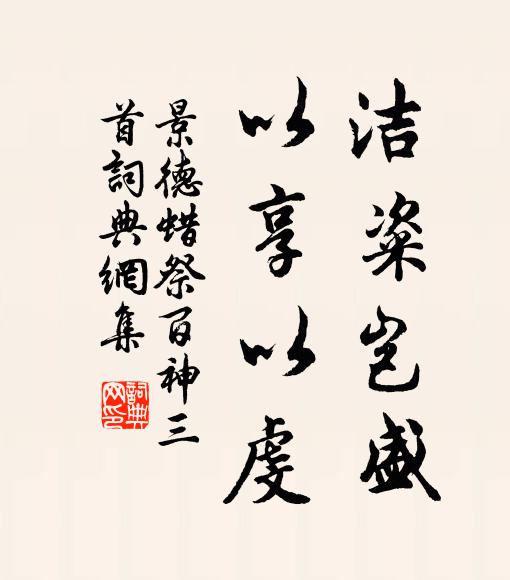 洁粢岂盛
以享以虔
景德蜡祭百神三
首詞典網集
詞典網印